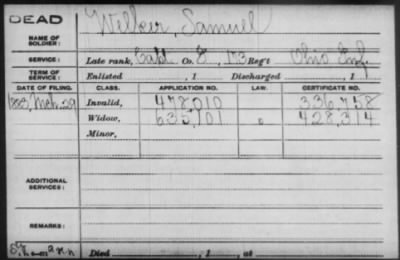 DEAD
Welker, Samuel
NAME OF SOLDIER:
SERVICE: Late rank, Capt Co. 173 Reg't Ohio Inf.
TERM OF SERVICE: Enlisted , 1 Discharged , 1
DATE OF FILING. CLASS. APPLICATION NO. LAW. CERTIFICATE NO.
Mch. 29 Invalid, 478,010 336,758
Widow, 635,101 428,314
Minor,
ADDITIONAL SERVICES:
REMARKS:
Died , 1 , at